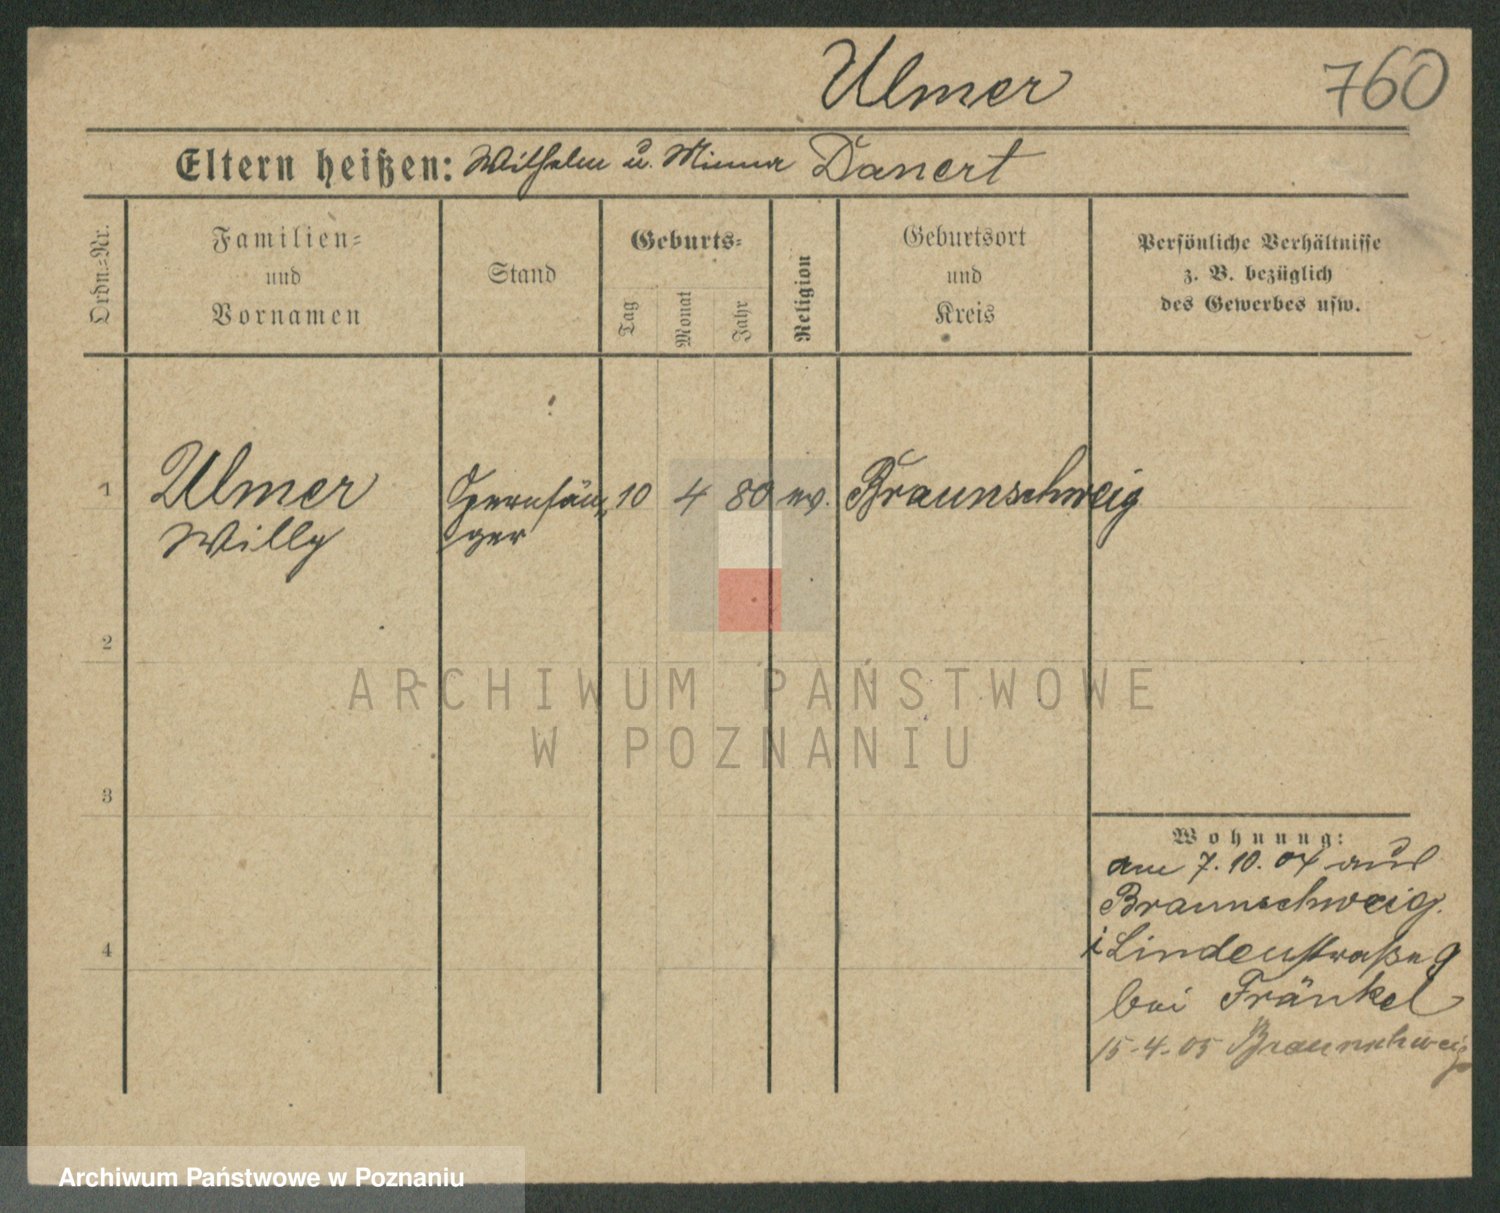 Ulmer 760
Eltern heißen: Wilhelm u. Minna Danert
Ordn.=Nr.
Familien=
und
Vornamen
Stand
Geburts=
Tag
Monat
Jahr
Religion
Geburtsort
und
Kreis
Persönliche Verhältnisse
z. B. bezüglich
des Gewerbes usw.
1 Ulmer Opernsän= 10 4 80 ev. Braunschweig
Willy ger
2
3
4
Wohnung:
am 7. 10. 04 aus
Braunschweig.
i Lindenstraße 9
bei Fränkel
15-4-05 Braunschweig
ARCHIWUM PAŃSTWOWE
W POZNANIU
Archiwum Państwowe w Poznaniu